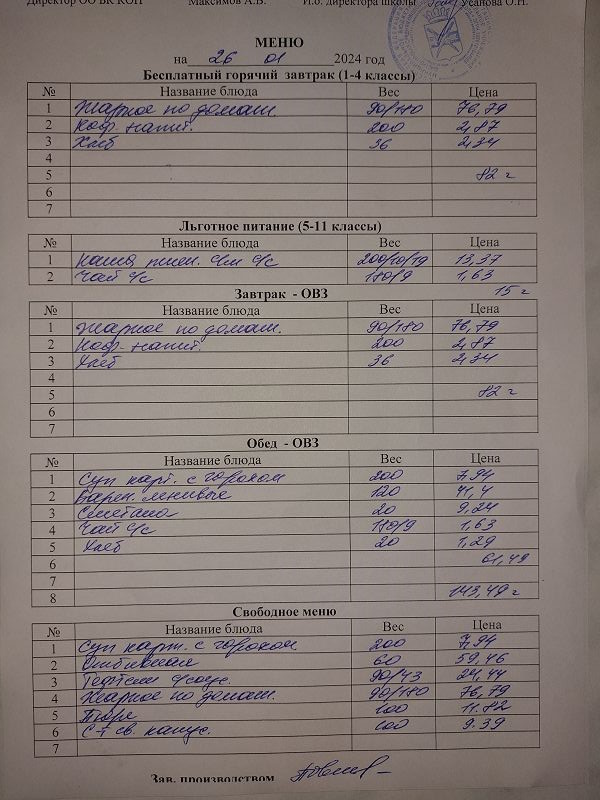 Директор ОО БК КОП Максимов А.В. И.о. директора школы Усанова О.Н.
МЕНЮ
на 26 01 2024 год
Бесплатный горячий завтрак (1-4 классы)
№ Название блюда Вес Цена
1 Жаркое по домаш. 90/180 76,79
2 Коф. напит. 200 2,87
3 Хлеб 36 2,34
4
5 82 г
6
7
Льготное питание (5-11 классы)
№ Название блюда Вес Цена
1 каша пшен. 200/10/19 13,37
2 Чай с/с 180/9 1,63
Завтрак - ОВЗ 15 г
№ Название блюда Вес Цена
1 Жаркое по домаш. 90/180 76,79
2 Коф. напит. 200 2,87
3 Хлеб 36 2,34
4
5 82 г
6
7
Обед - ОВЗ
№ Название блюда Вес Цена
1 Суп карт. с горохом 200 7,94
2 Варен. ленивые 120 41,4
3 Сметана 20 9,24
4 Чай с/с 180/9 1,63
5 Хлеб 20 1,29
6 61,49
7
8 143,49 г
Свободное меню
№ Название блюда Вес Цена
1 Суп карт. с горохом 200 7,94
2 Отбивная 60 59,46
3 Тефтели 90/43
4 Жаркое по домаш. 90/180 76,79
5 Пюре 100 11.82
6 С-т св. капус. 100 9.39
7
Зав. производством